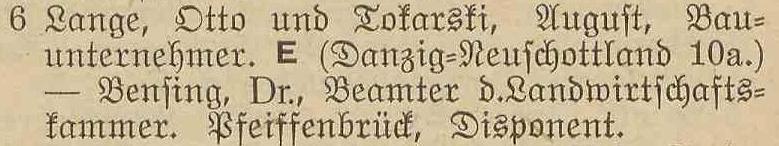 6 Lange, Otto und Tokarski, August, Bau=
unternehmer. E (Danzig=Neuschottland 10a.)
— Bensing, Dr., Beamter d.Landwirtschafts=
kammer. Pfeiffenbrück, Disponent.